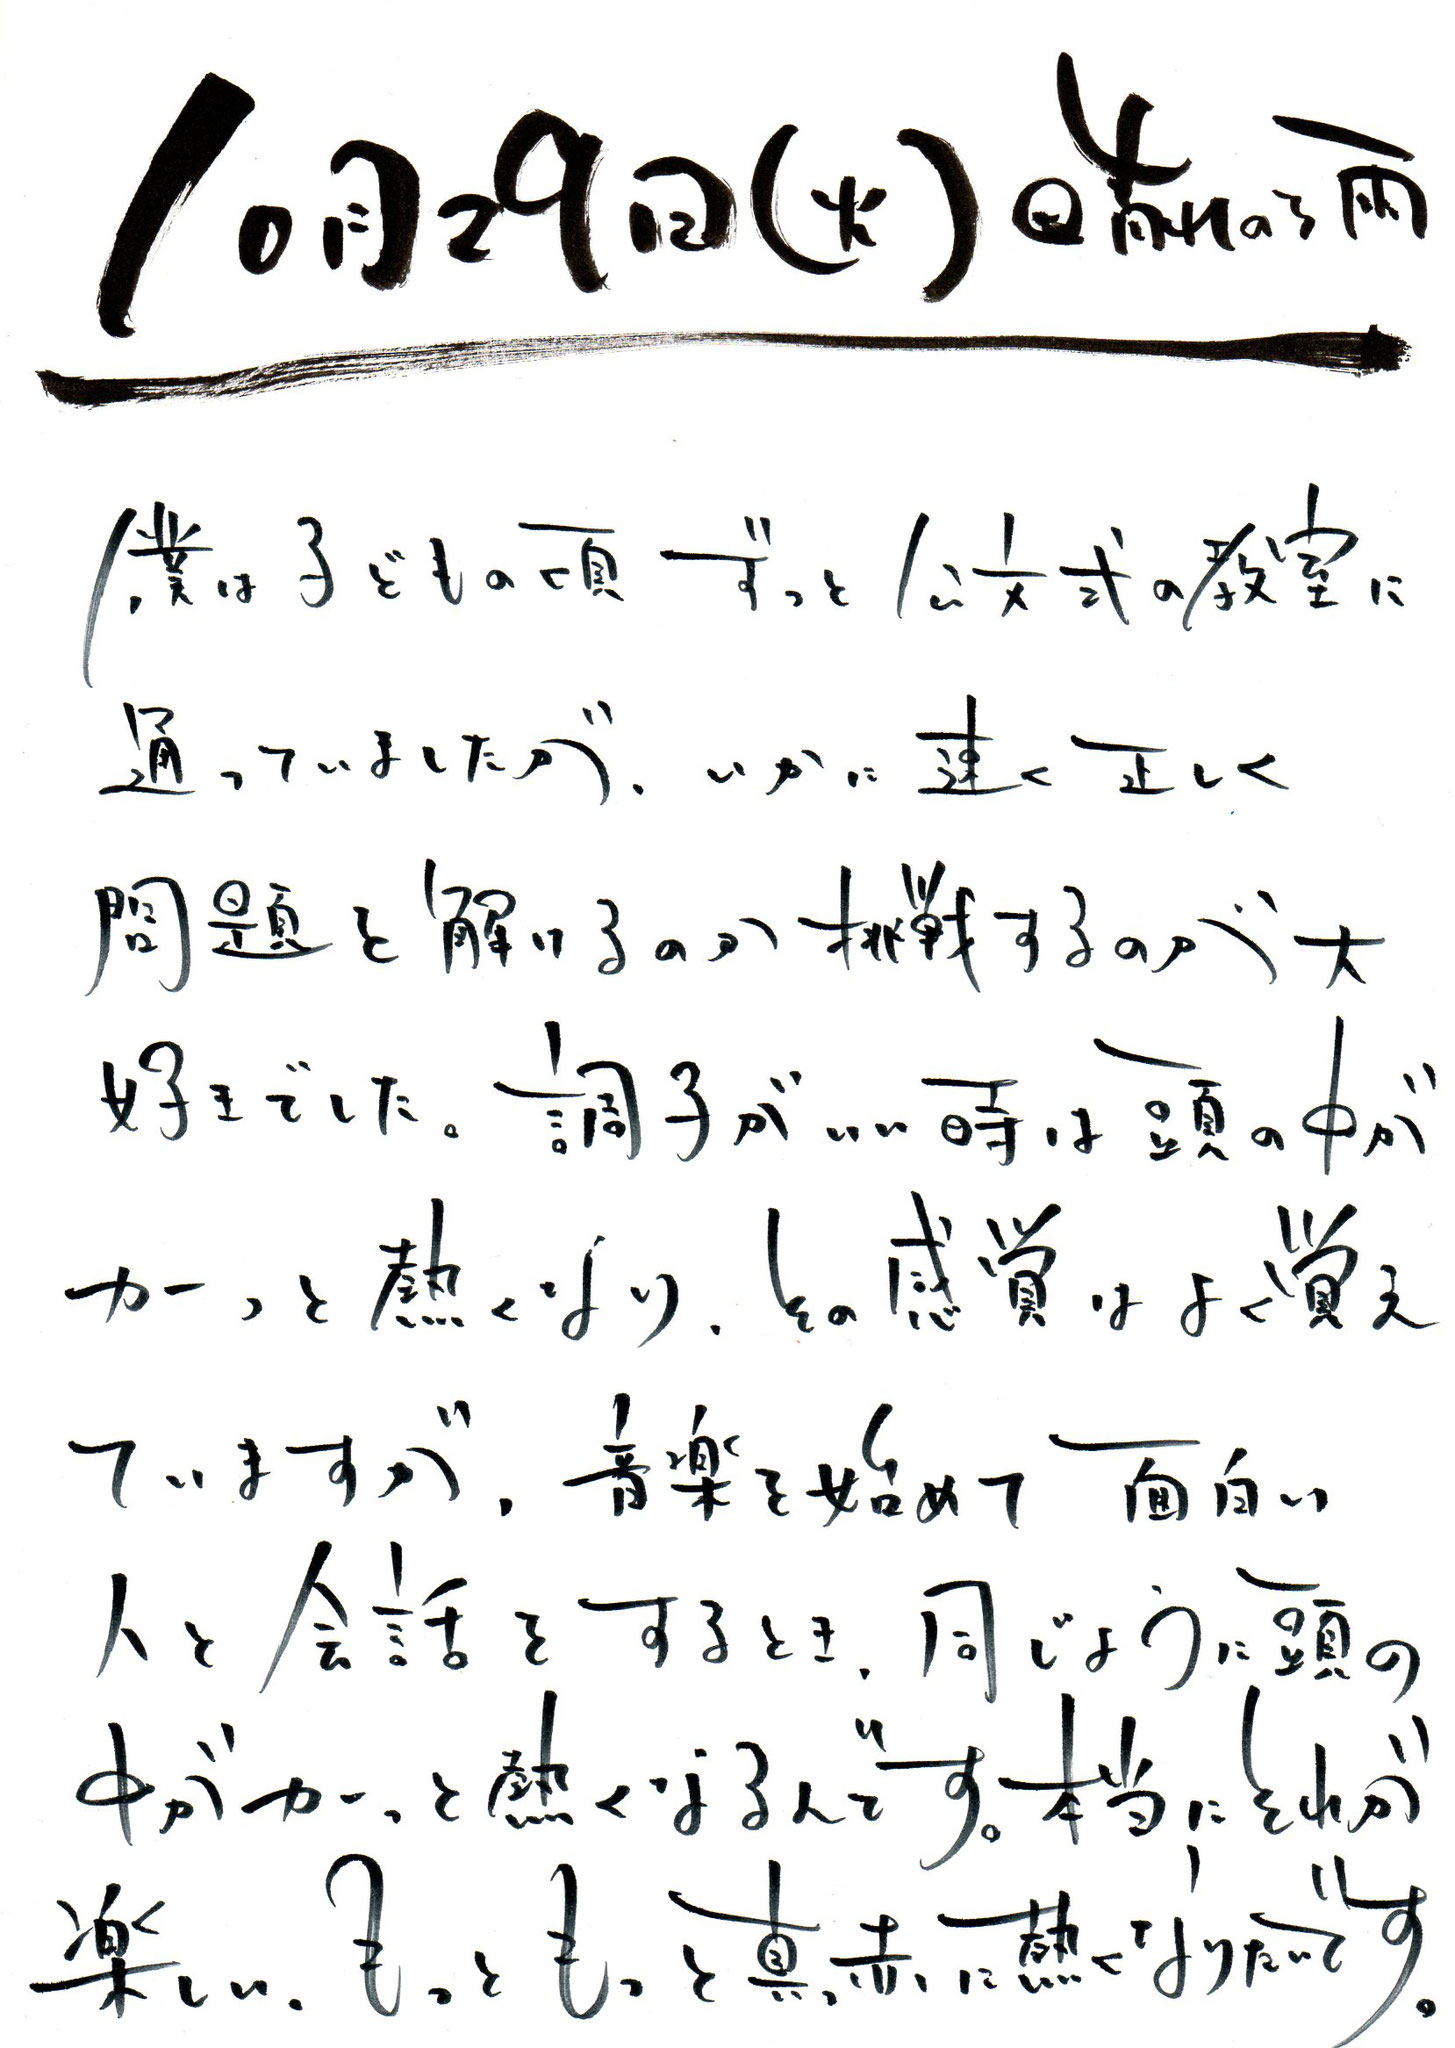 10月29日(火)晴れのち雨
僕は子どもの頃ずっと公文式の教室に
通っていましたが、いかに速く正しく
問題を解けるのか挑戦するのが大
好きでした。調子がいい時は頭の中が
カーっと熱くなり、その感覚はよく覚え
ていますが、音楽を始めて面白い
人と会話をするとき、同じように頭の
中がカーっと熱くなるんです。本当にそれが
楽しい、もっともっと真っ赤に熱くなりたいです。